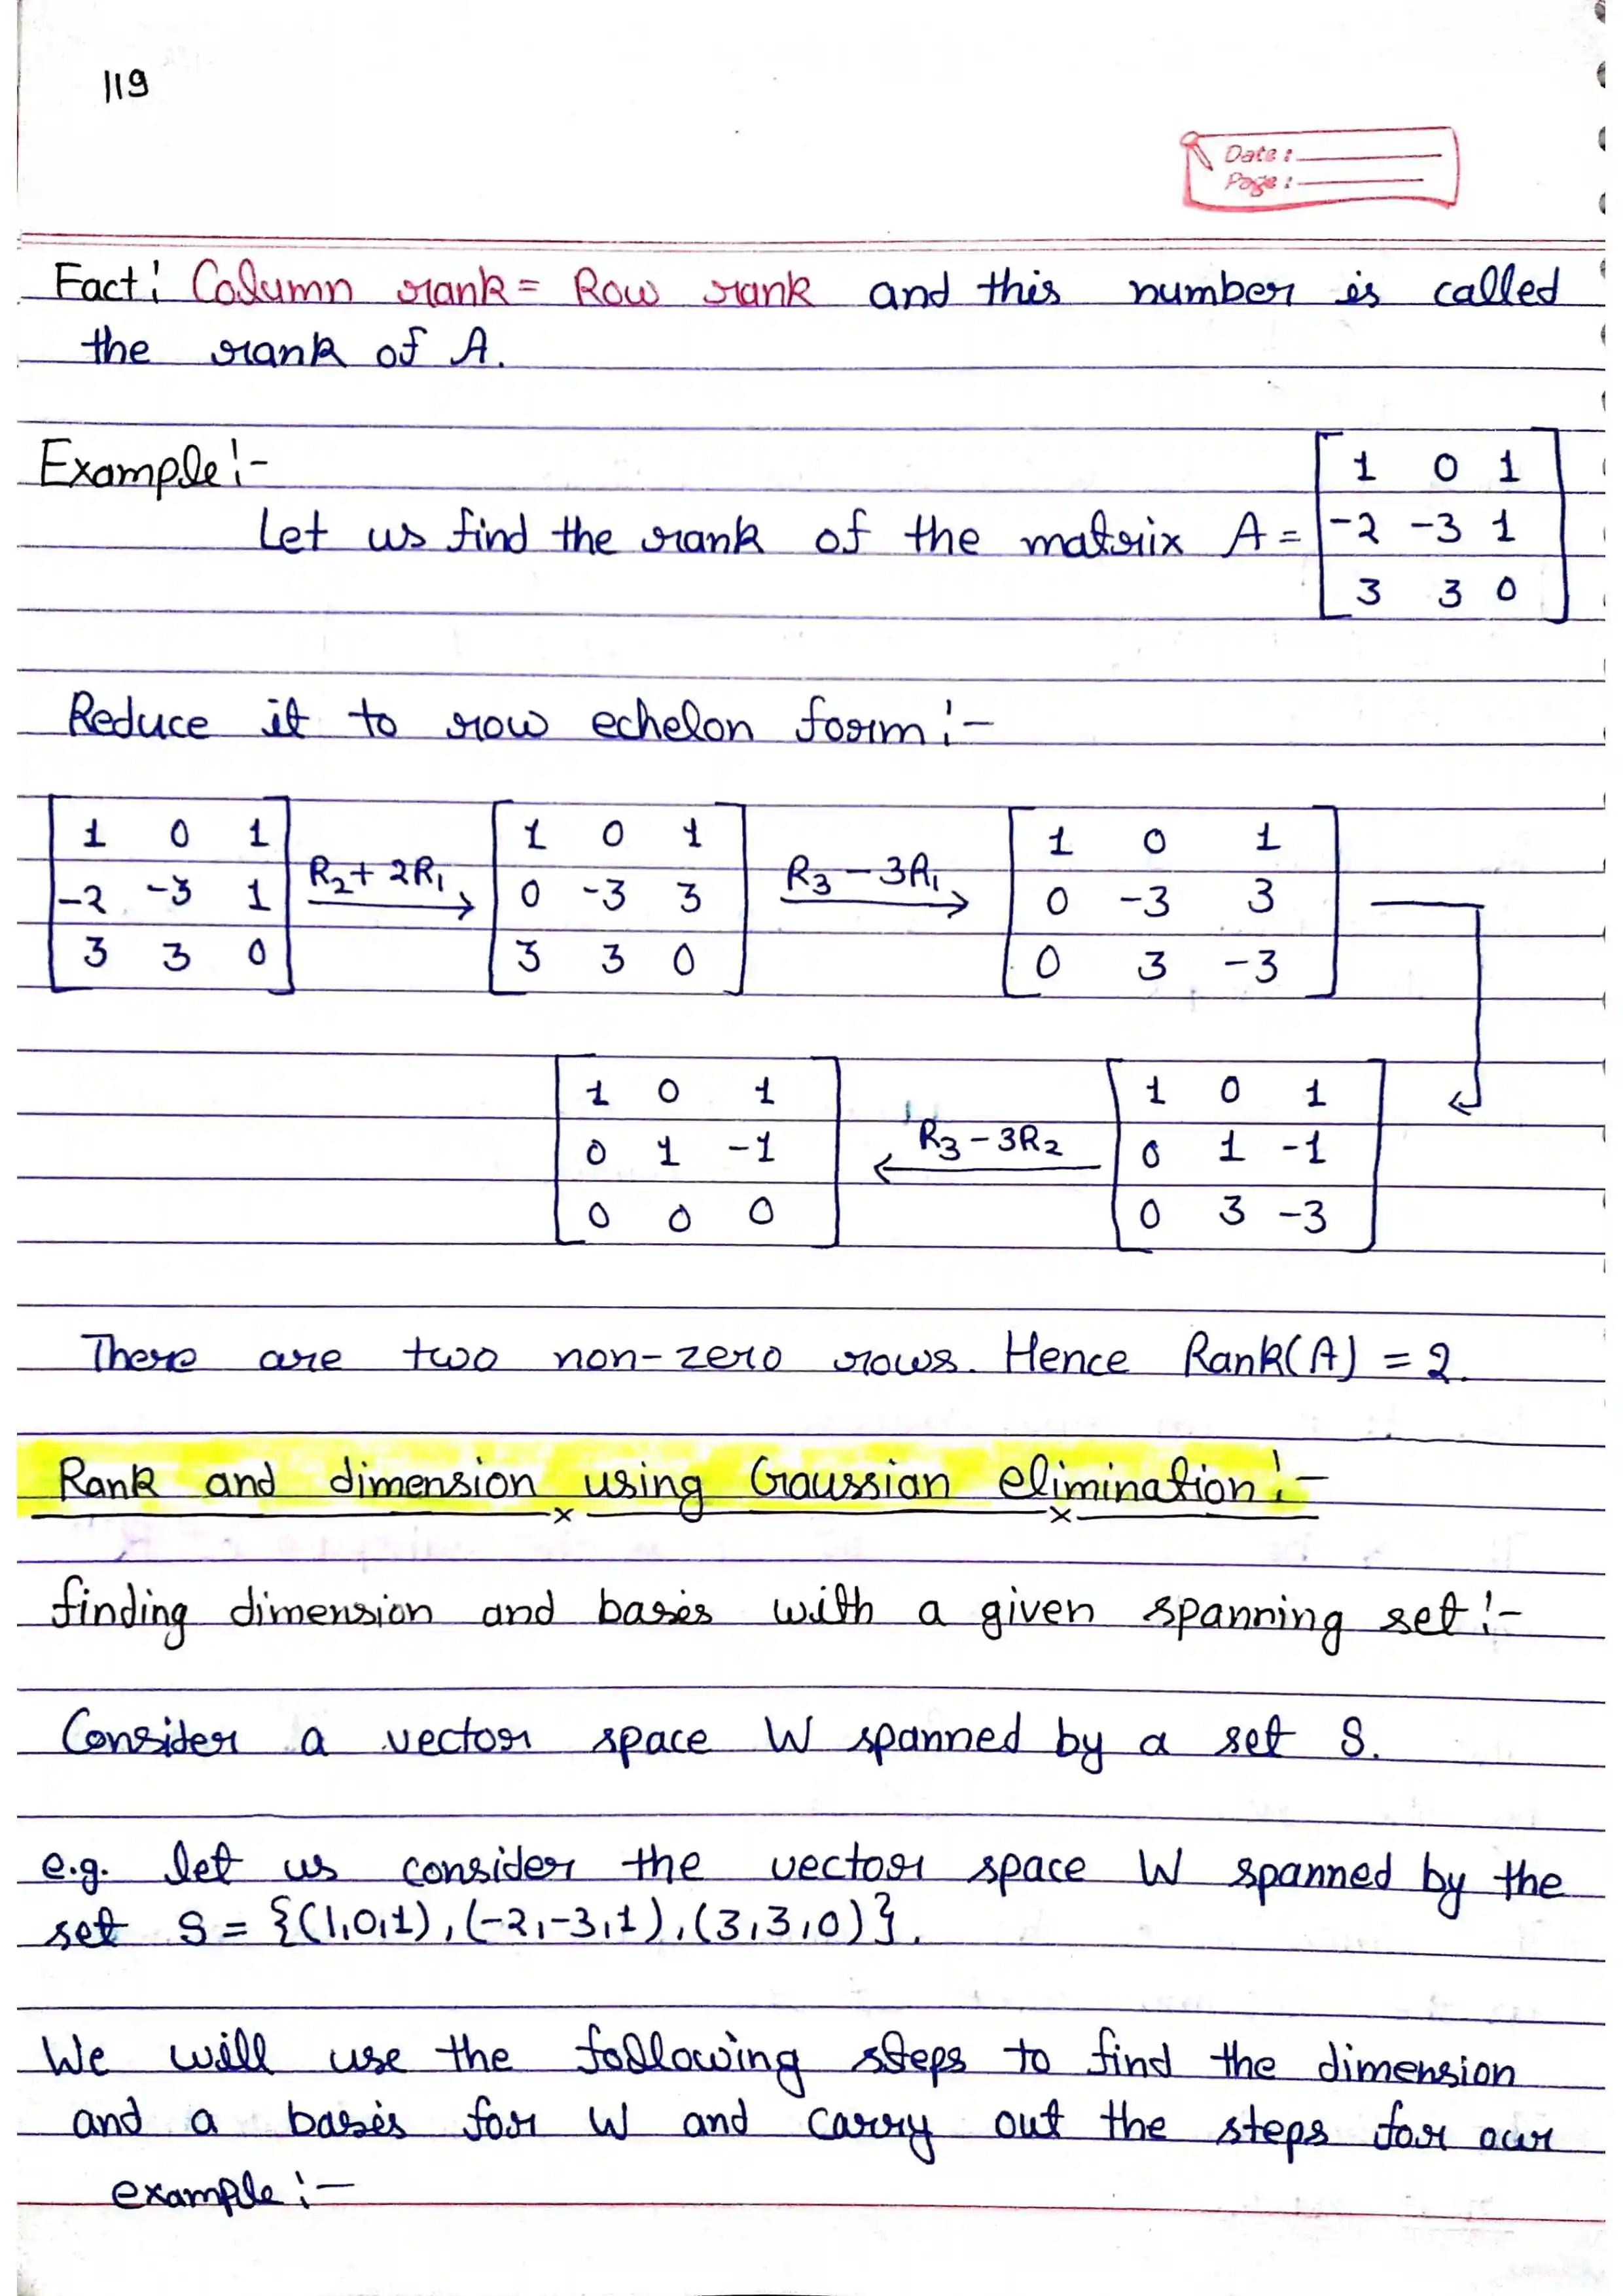 119
Date :
Page :
Fact: Column rank = Row rank and this number is called
the rank of A.
Example:-
Let us find the rank of the matrix A = [1 0 1
-2 -3 1
3 3 0]
Reduce it to row echelon form:-
[1 0 1 [1 0 1 [1 0 1
-2 -3 1 R2+2R1 → 0 -3 3 R3-3R1 → 0 -3 3
3 3 0] 3 3 0] 0 3 -3]
[1 0 1 [1 0 1
0 1 -1 ← R3-3R2 0 1 -1
0 0 0] 0 3 -3]
There are two non-zero rows. Hence Rank(A) = 2.
Rank and dimension using Gaussian elimination:-
finding dimension and basis with a given spanning set:-
Consider a vector space W spanned by a set S.
e.g. let us consider the vector space W spanned by the
set S = {(1,0,1), (-2,-3,1), (3,3,0)}.
We will use the following steps to find the dimension
and a basis for W and carry out the steps for our
example:-